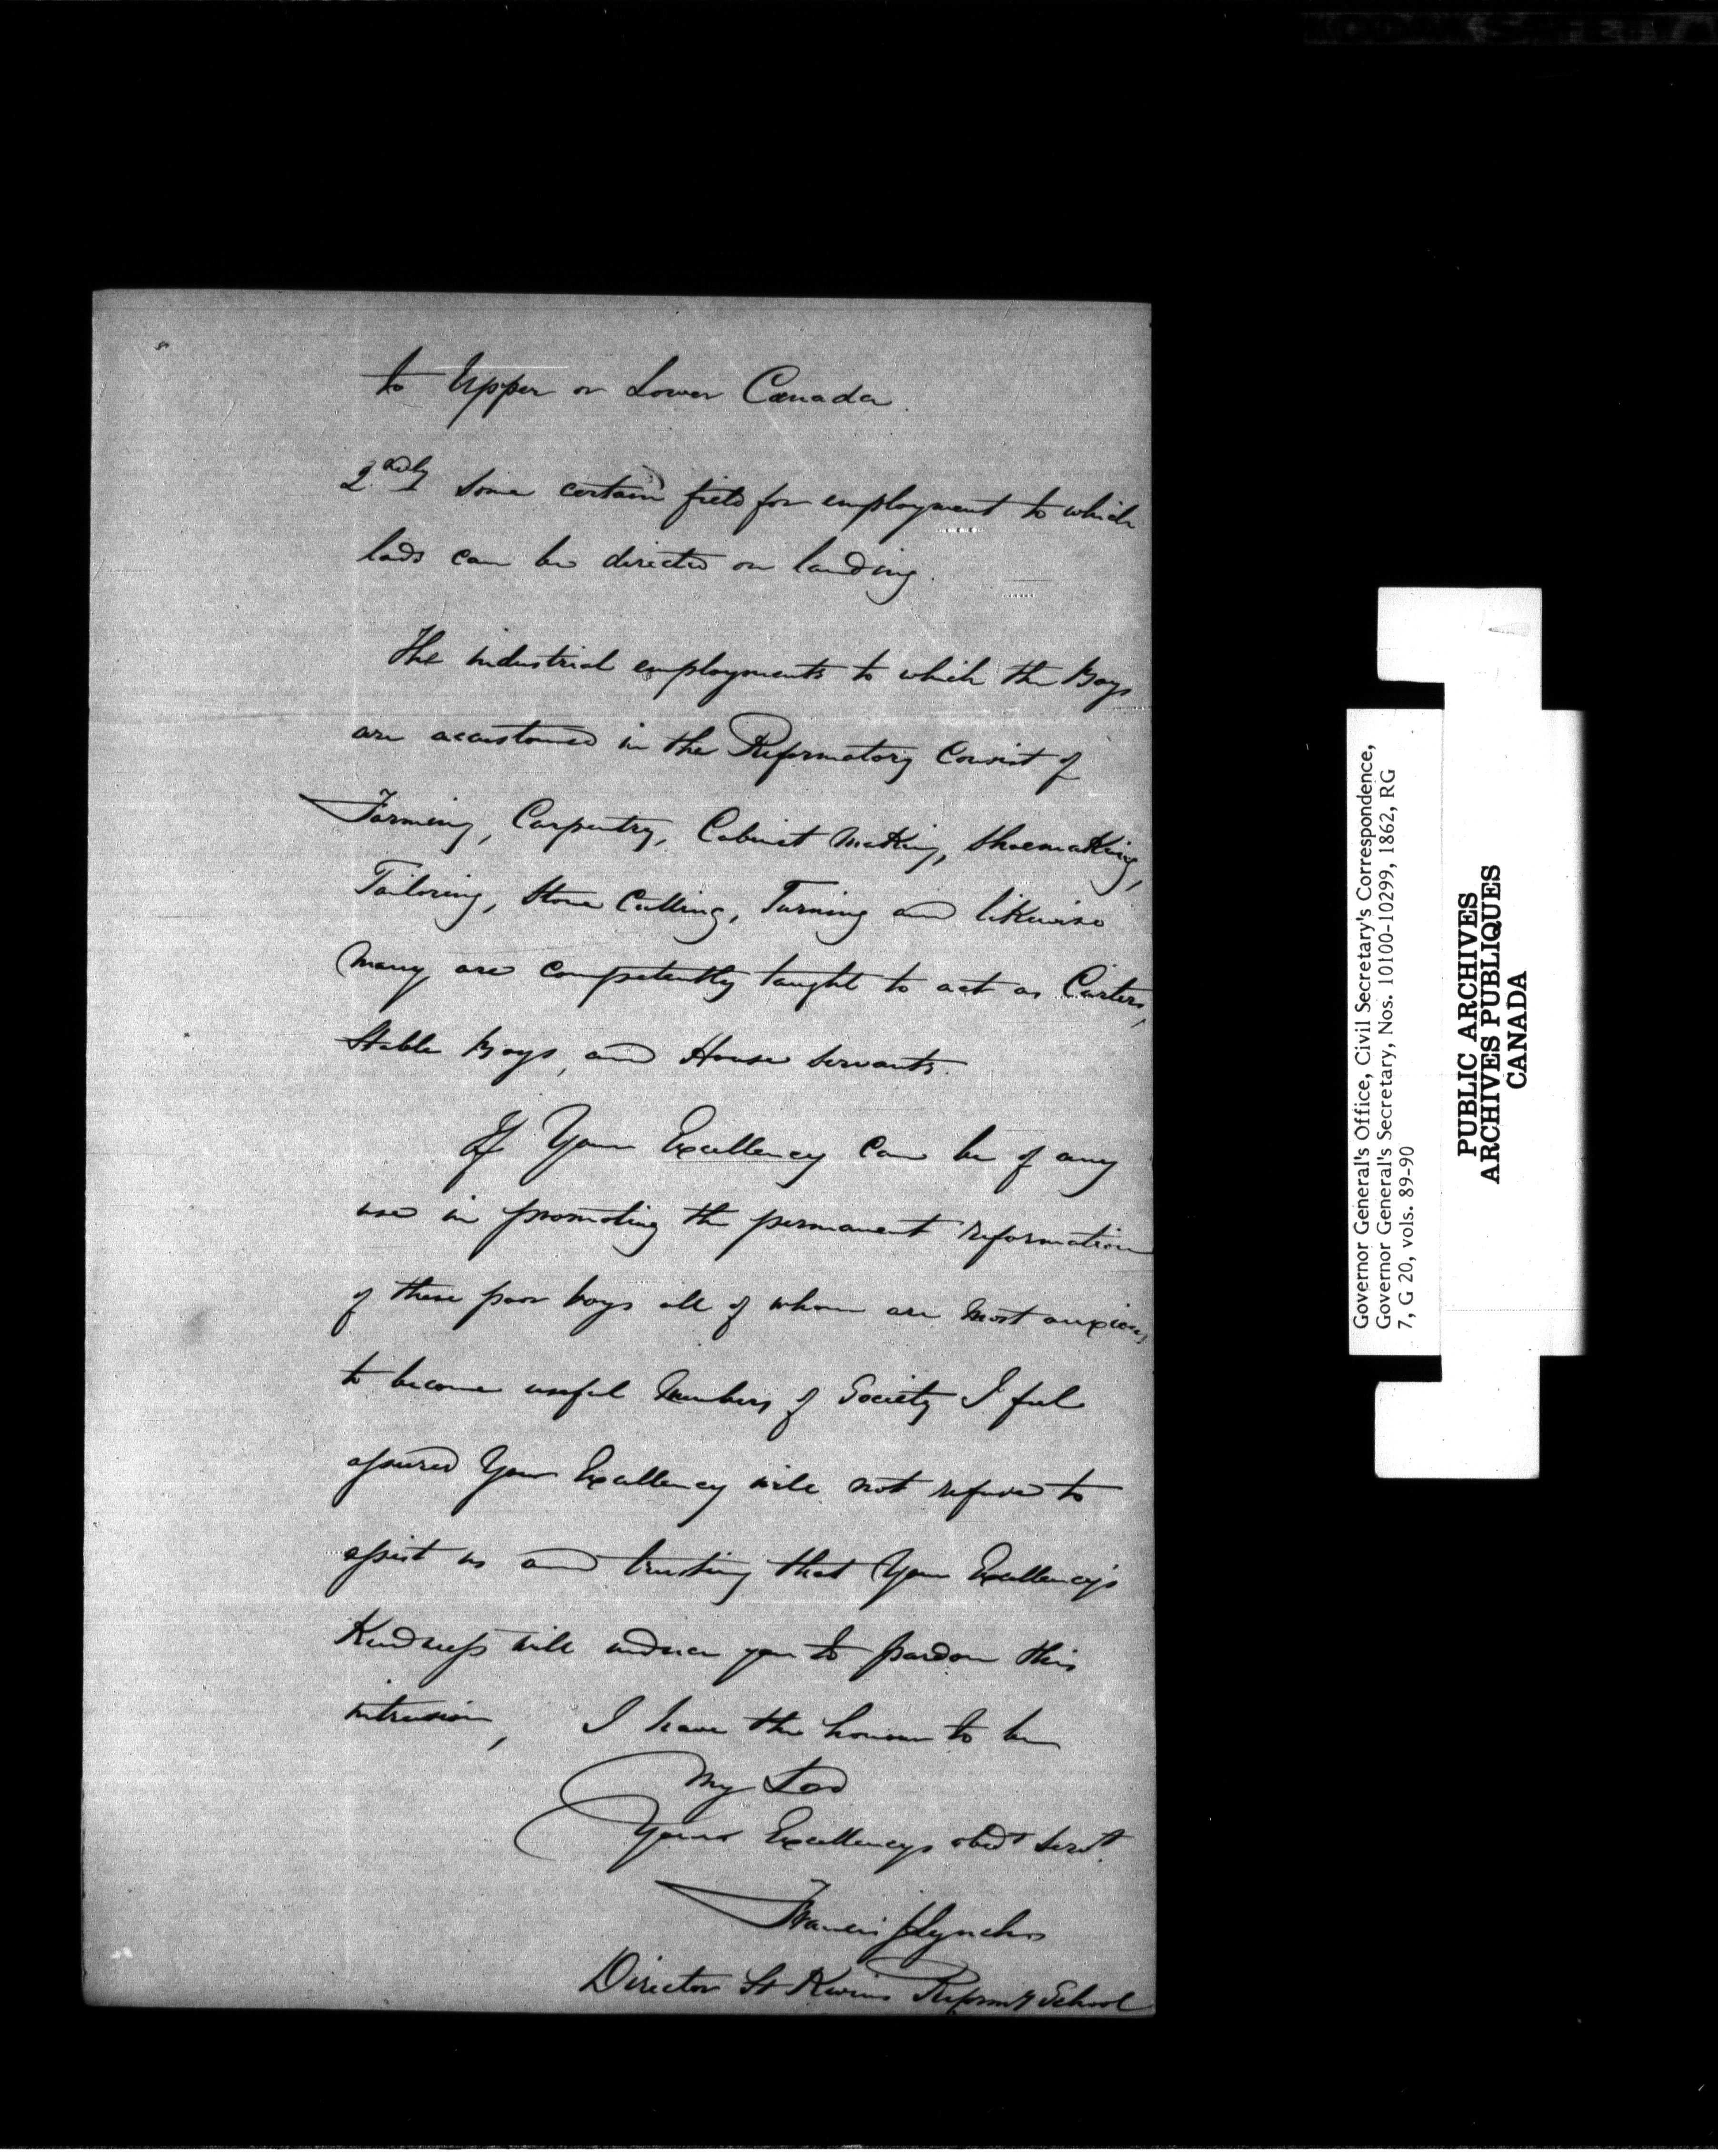 to Upper or Lower Canada.
2.ndly Some certain field for employment to which
lads can be directed on landing.
The industrial employments to which the Boys
are accustomed in the Reformatory consist of
Farming, Carpentry, Cabinet Making, Shoemaking,
Tailoring, Stone Cutting, Turning and likewise
Many are competently taught to act as Carters,
Stable Boys, and House Servants.
If Your Excellency can be of any
use in promoting the permanent reformation
of these poor boys all of whom are most anxious
to become useful Members of Society I feel
assured Your Excellency will not refuse to
assist us and trusting that Your Excellency's
Kindness will induce you to pardon this
intrusion, I have the honour to be
My Lord
Your Excellencys obedt Servt.
Francis J Lynch
Director St Kevins Reformy School
Governor General's Office, Civil Secretary's Correspondence,
Governor General's Secretary, Nos. 10100-10299, 1862, RG
7, G 20, vols. 89-90
PUBLIC ARCHIVES
ARCHIVES PUBLIQUES
CANADA